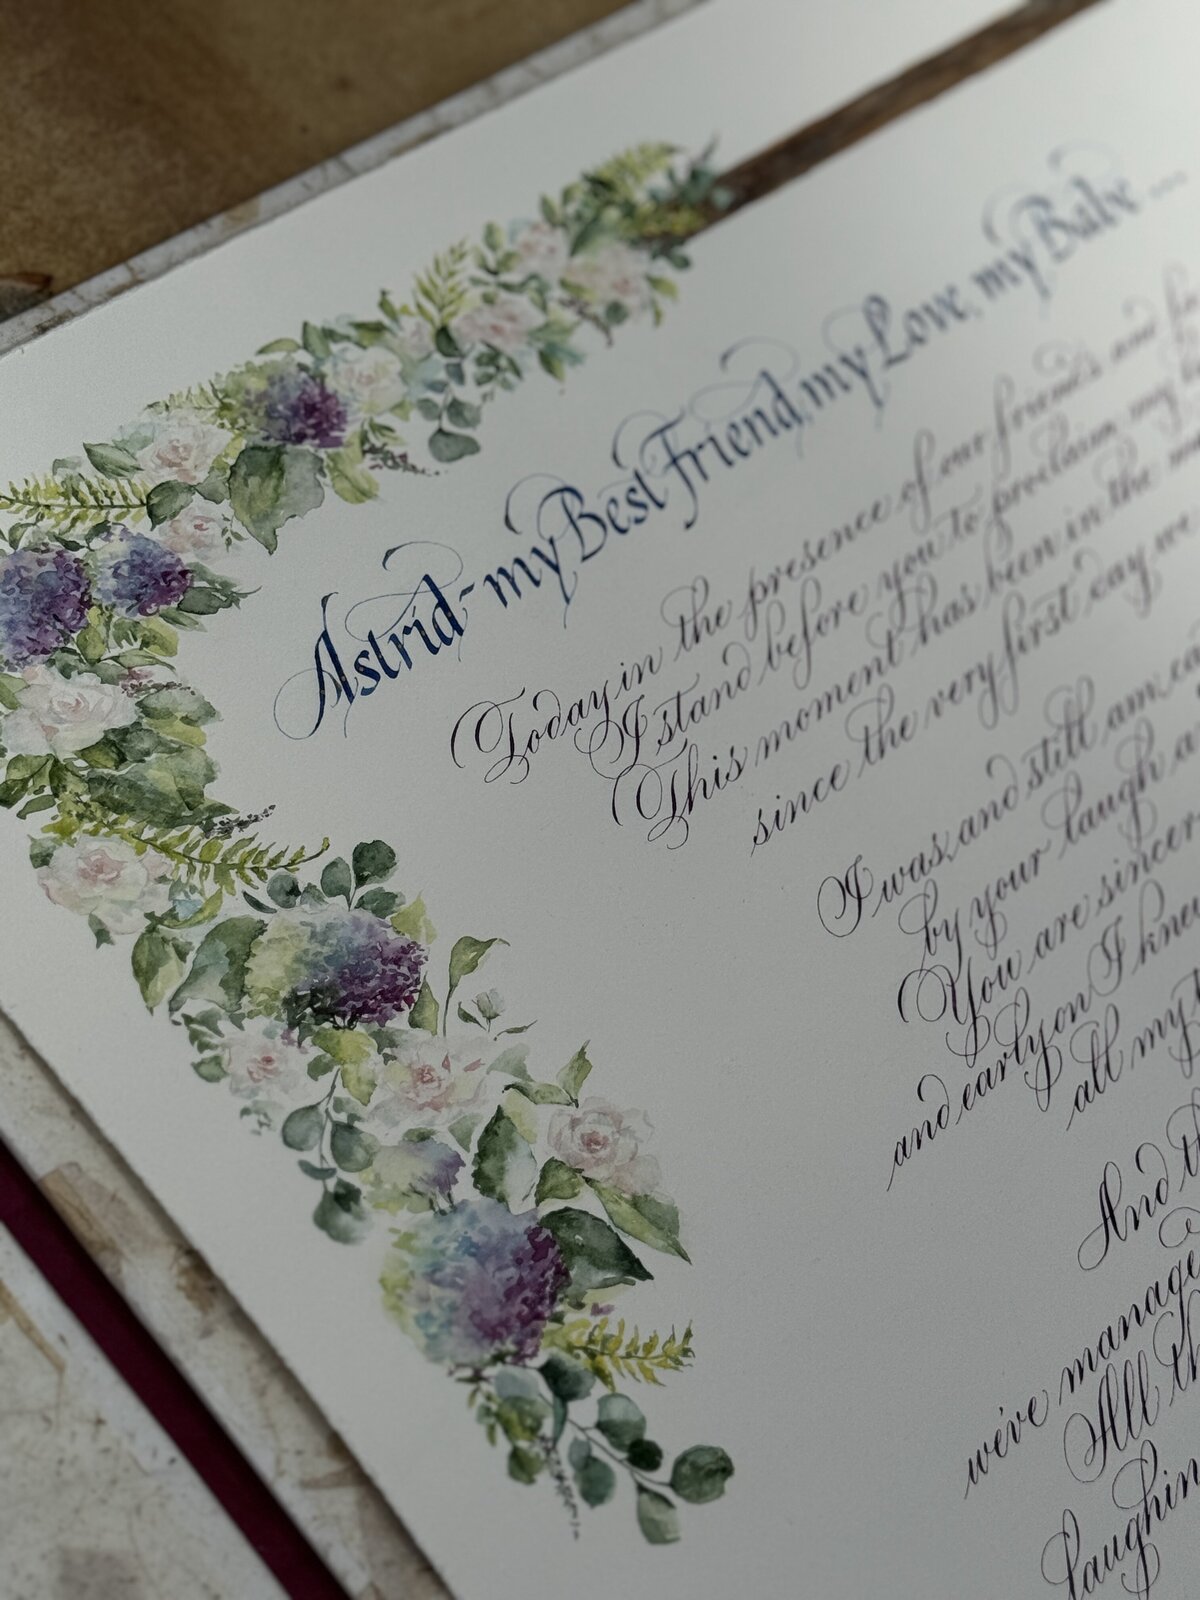 Astrid - my Best Friend, my Love, my Babe ...
Today in the presence of our friends and
I stand before you to proclaim my
This moment has been in the
since the very first day we
I was, and still am
by your laugh
You are
and early on I knew
all my
And
we've
All